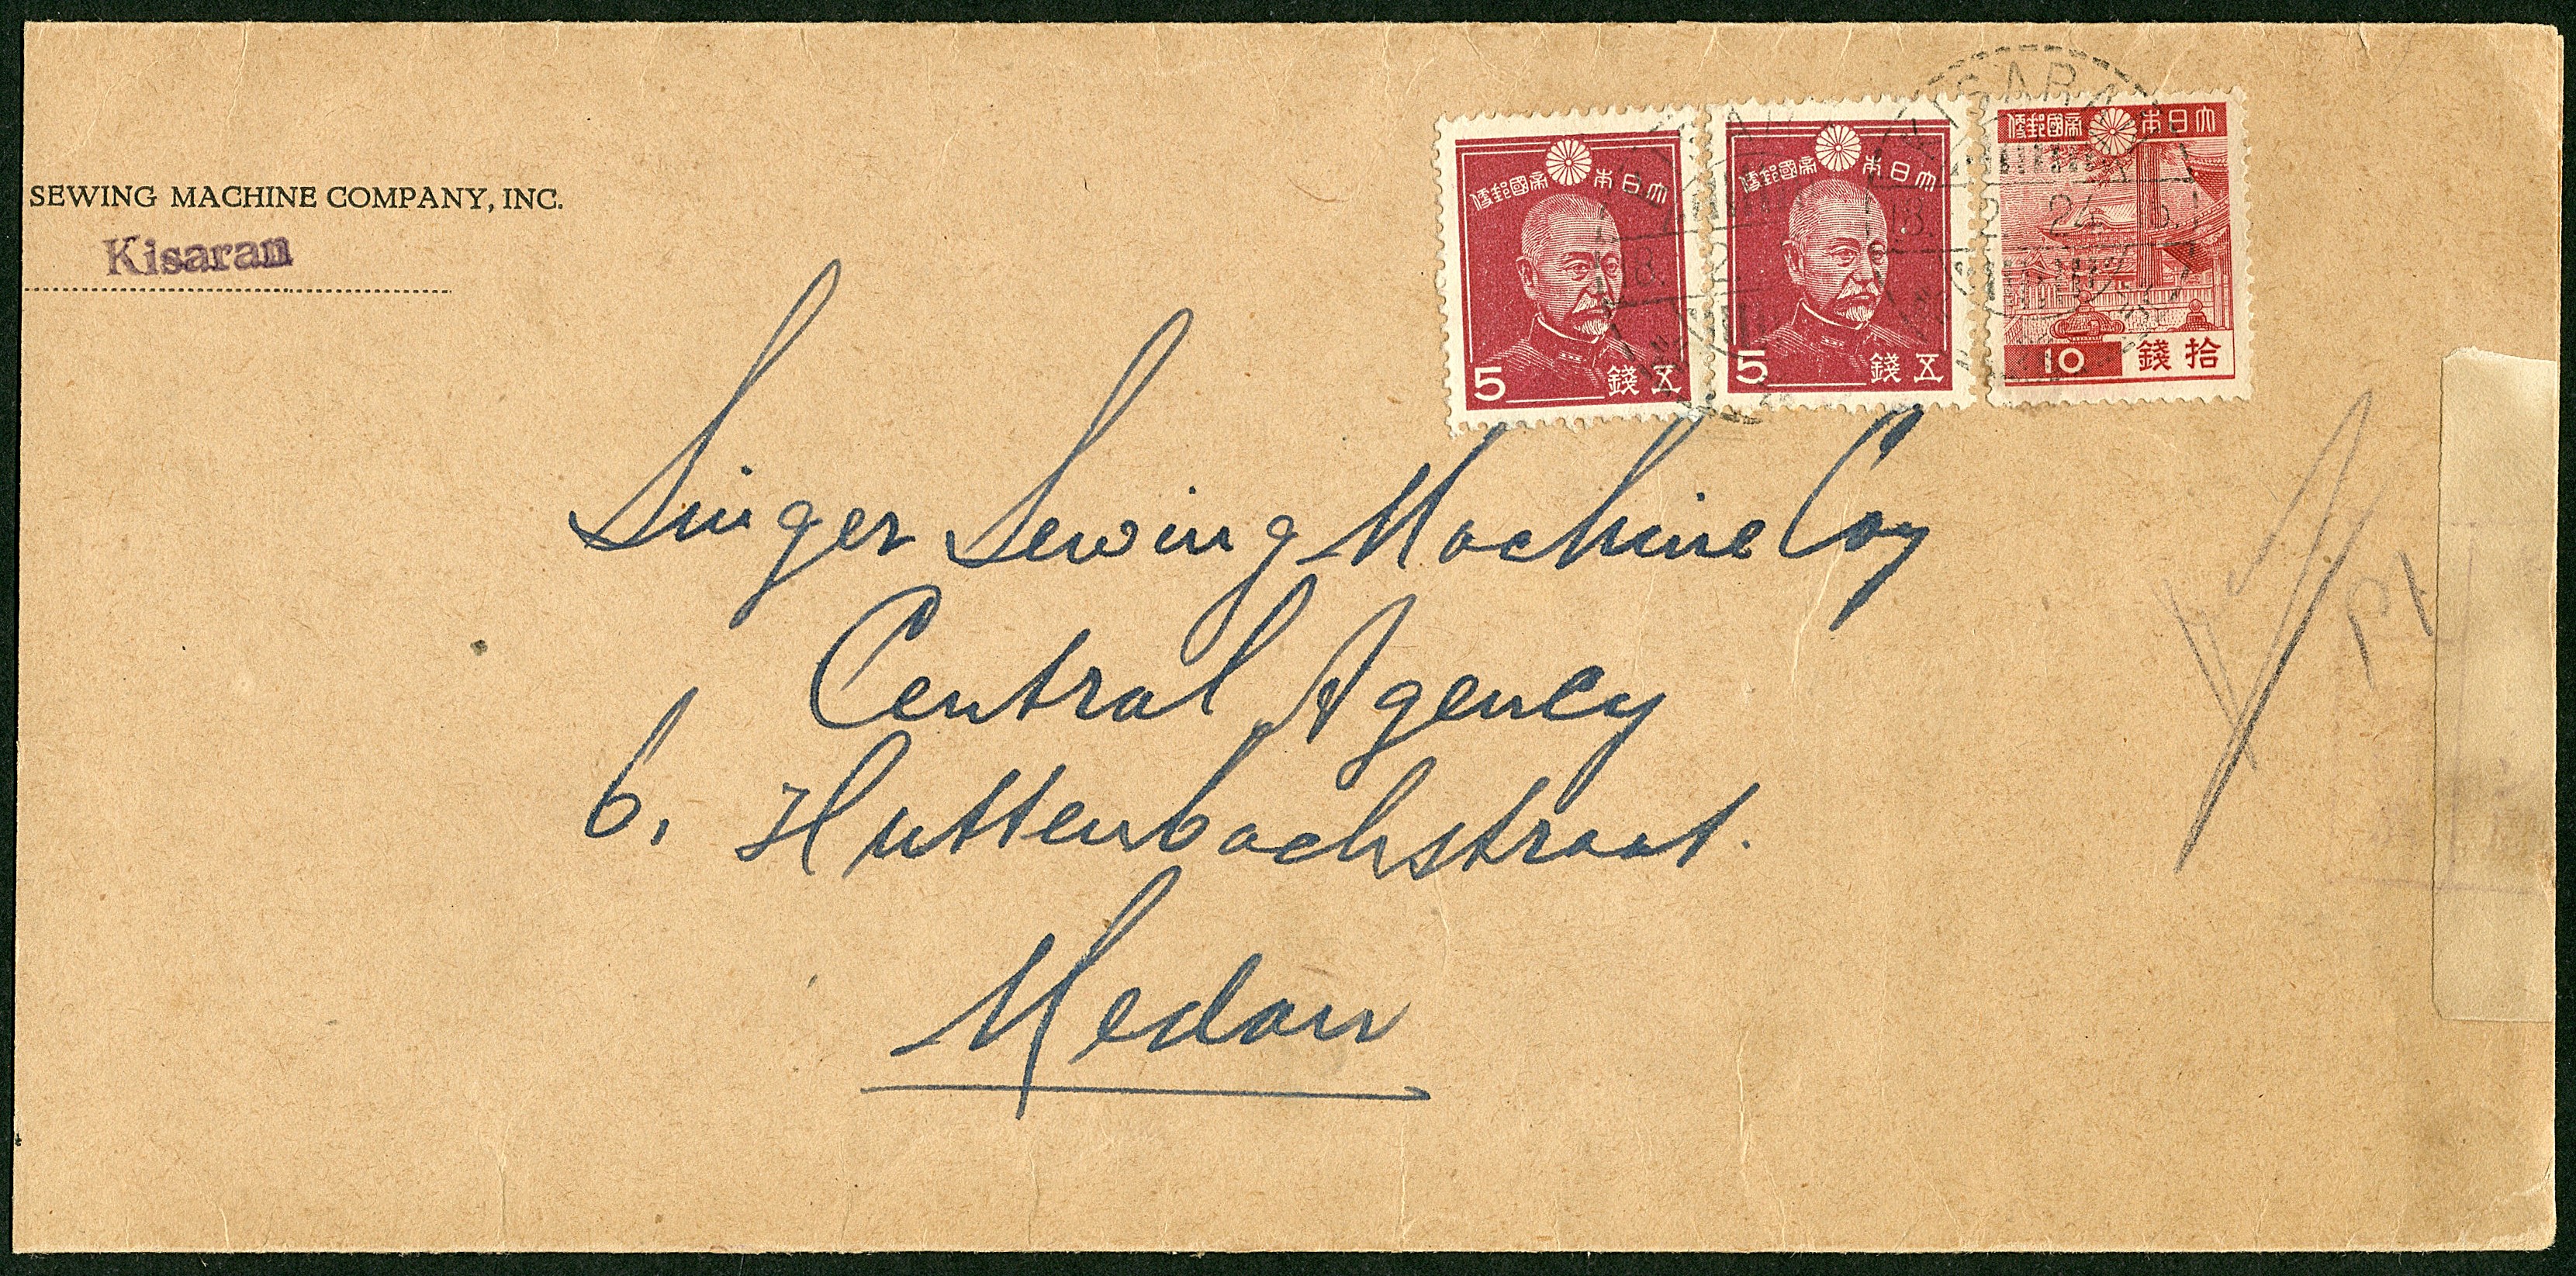 SEWING MACHINE COMPANY, INC.
Kisaran
大日本帝國郵便
5 五錢
大日本帝國郵便
5 五錢
大日本帝國郵便
10 拾錢
KISARA
18. 2. 24
Singer Sewing Machine Coy
Central Agency
6, Huttenbachstraat.
Medan